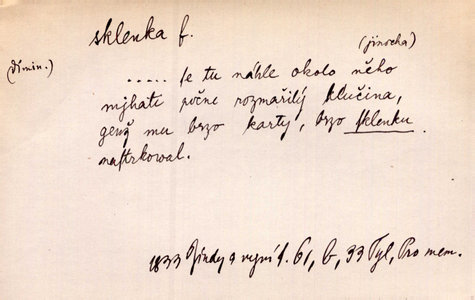 sklenka f.
(jinocha)
(dimin.)
..... se tu náhle okolo něho
mihati počne rozmařilý klučina,
genž mu brzo karty, brzo sklenku
nastrkowal.
1833 Jindy a nyní I. 61, b, 33 Tyl, Pro mem.